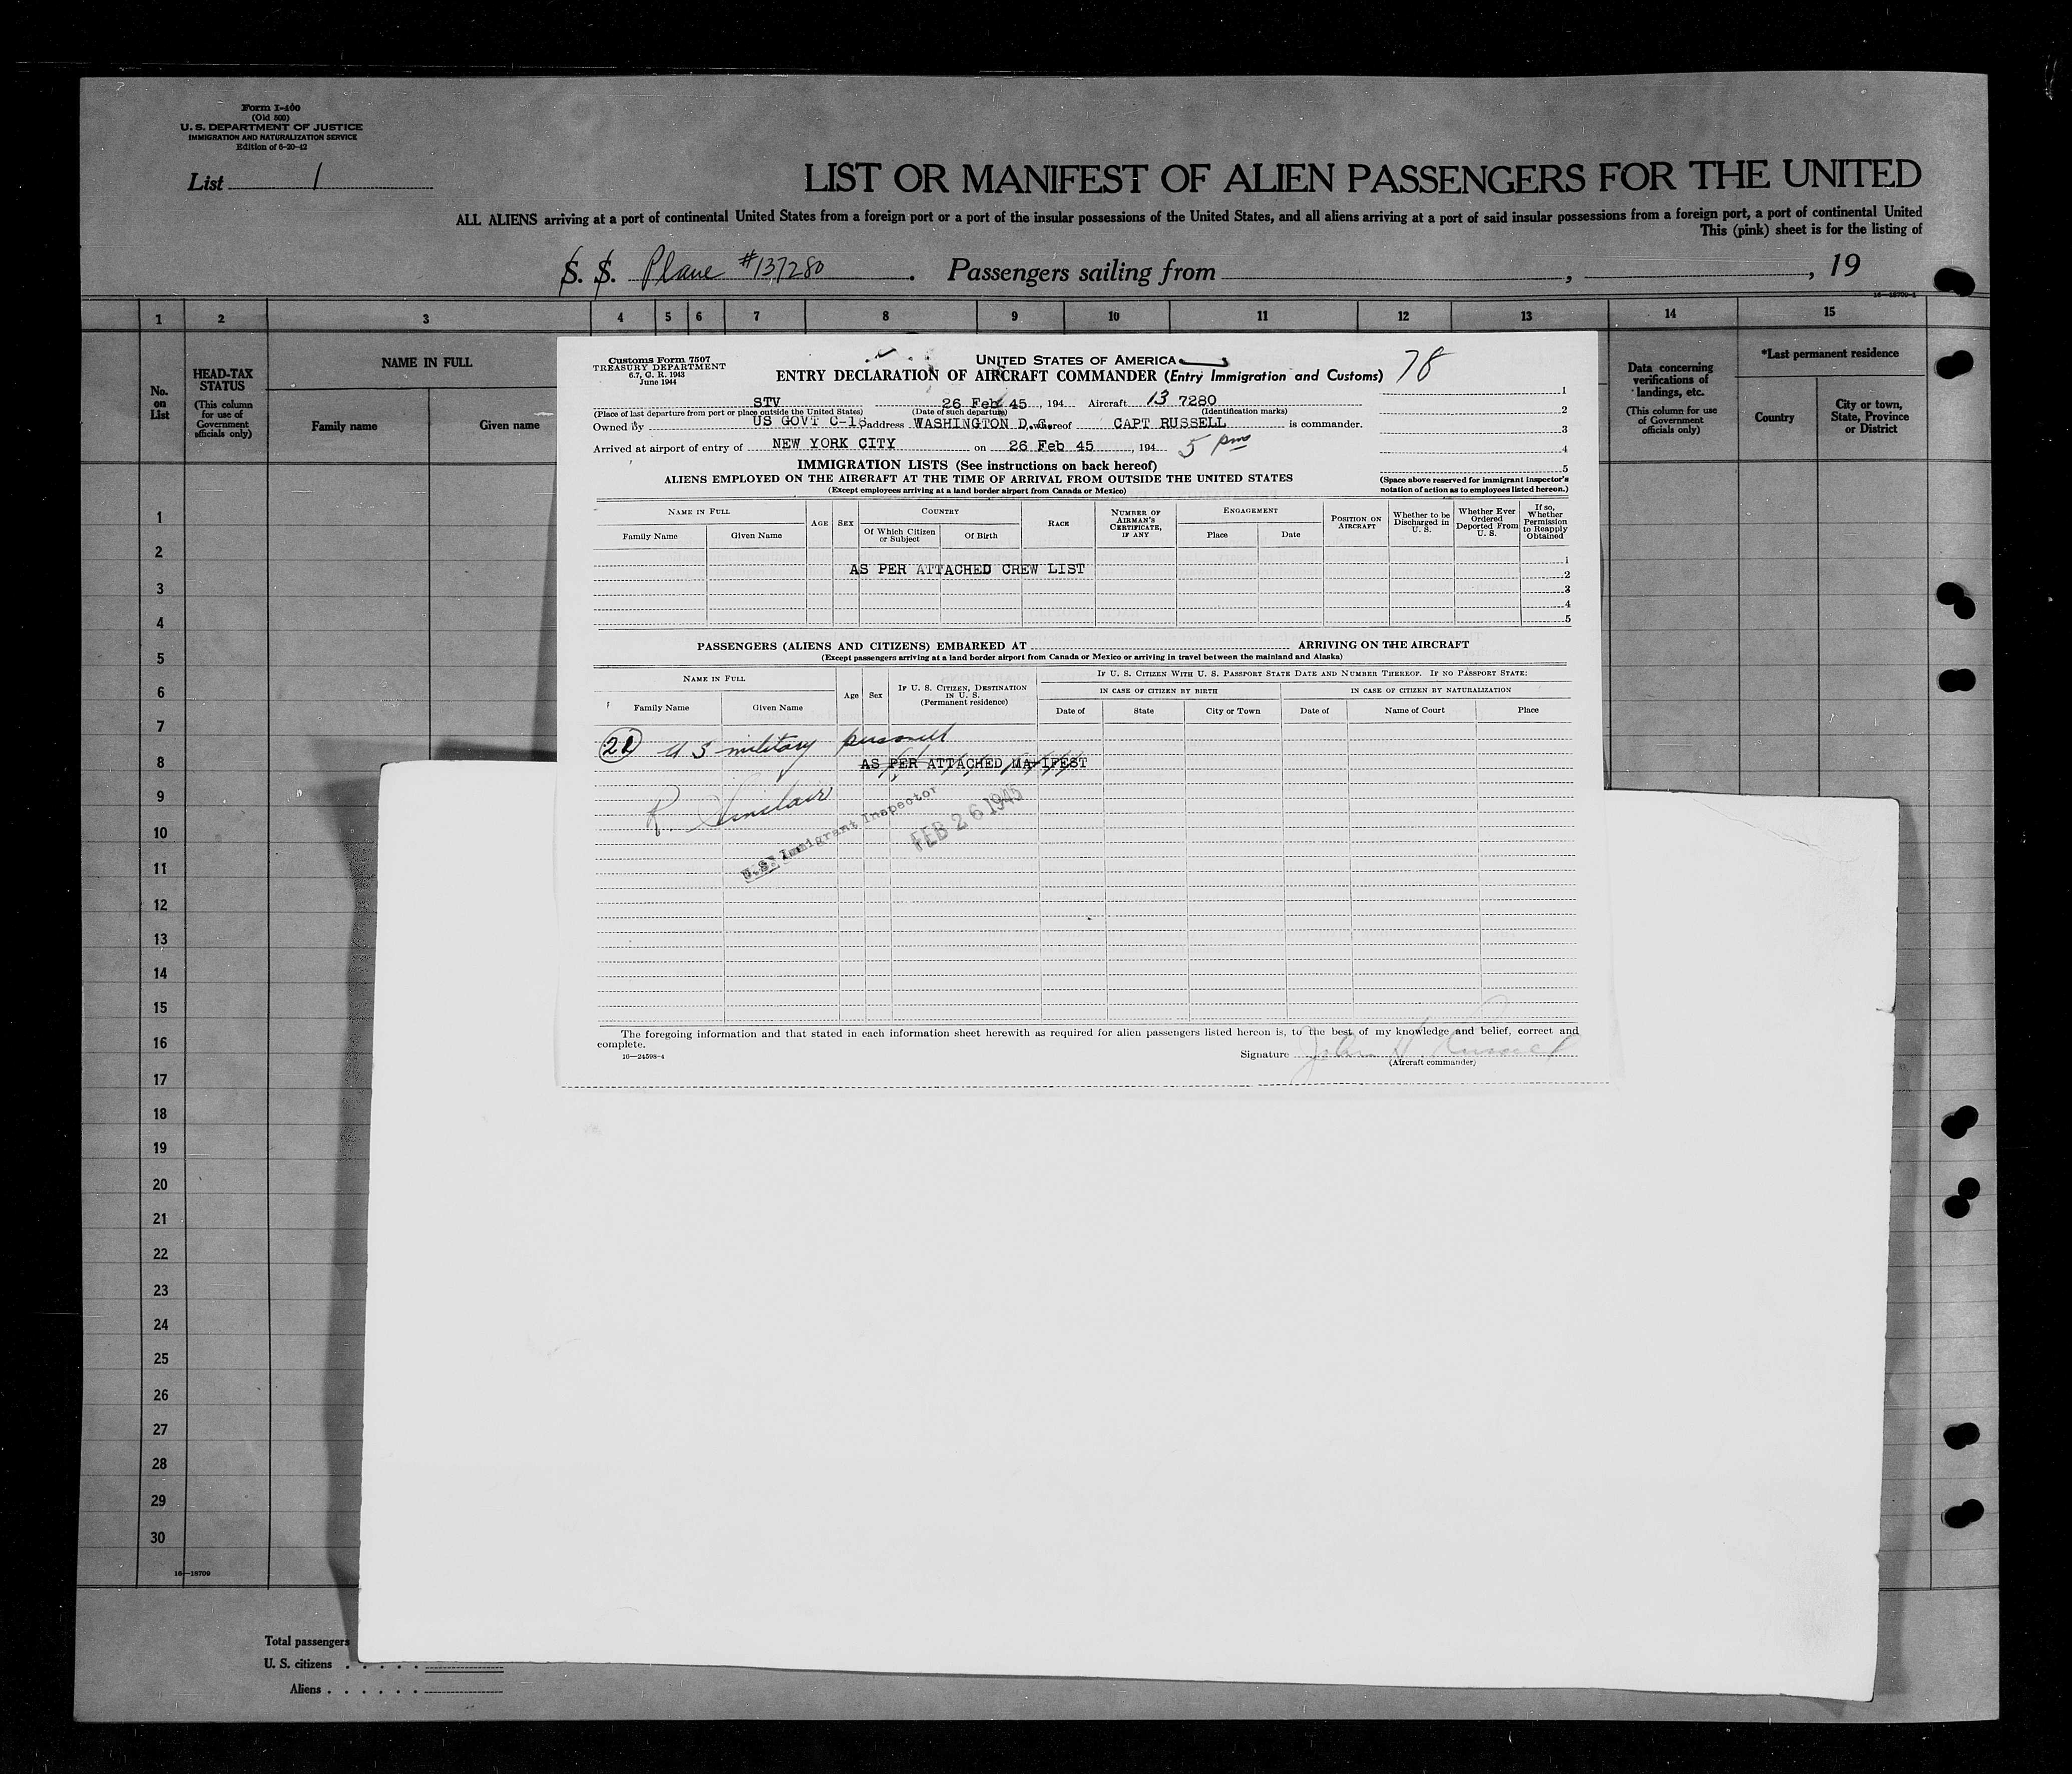 Form I-400
(Old 500)
U. S. DEPARTMENT OF JUSTICE
IMMIGRATION AND NATURALIZATION SERVICE
Edition of 6-20-42
List 1
LIST OR MANIFEST OF ALIEN PASSENGERS FOR THE UNITED
ALL ALIENS arriving at a port of continental United States from a foreign port or a port of the insular possessions of the United States, and all aliens arriving at a port of said insular possessions from a foreign port, a port of continental United
This (pink) sheet is for the listing of
S. S. Plane #137280. Passengers sailing from , , 19
16—18709-1
1 2 3 4 5 6 7 8 9 10 11 12 13 14 15
No. on List
HEAD-TAX STATUS
(This column for use of Government officials only)
NAME IN FULL
Family name
Given name
Data concerning verifications of landings, etc.
(This column for use of Government officials only)
*Last permanent residence
Country
City or town, State, Province or District
Customs Form 7507
TREASURY DEPARTMENT
6.7, C. R. 1943
June 1944
UNITED STATES OF AMERICA
ENTRY DECLARATION OF AIRCRAFT COMMANDER (Entry Immigration and Customs) 78
STV 26 Feb 45, 194 Aircraft 13 7280
(Place of last departure from port or place outside the United States) (Date of such departure) (Identification marks)
Owned by US GOVT C-16 address WASHINGTON D.C. whereof CAPT RUSSELL is commander.
Arrived at airport of entry of NEW YORK CITY on 26 Feb 45, 194 5 pm
1
2
3
4
5
(Space above reserved for immigrant inspector's notation of action as to employees listed hereon.)
IMMIGRATION LISTS (See instructions on back hereof)
ALIENS EMPLOYED ON THE AIRCRAFT AT THE TIME OF ARRIVAL FROM OUTSIDE THE UNITED STATES
(Except employees arriving at a land border airport from Canada or Mexico)
NAME IN FULL
Family Name
Given Name
AGE
SEX
COUNTRY
Of Which Citizen or Subject
Of Birth
RACE
NUMBER OF AIRMAN'S CERTIFICATE, IF ANY
ENGAGEMENT
Place
Date
POSITION ON AIRCRAFT
Whether to be Discharged in U. S.
Whether Ever Ordered Deported From U. S.
If so, Whether Permission to Reapply Obtained
AS PER ATTACHED CREW LIST
1
2
3
4
5
PASSENGERS (ALIENS AND CITIZENS) EMBARKED AT ARRIVING ON THE AIRCRAFT
(Except passengers arriving at a land border airport from Canada or Mexico or arriving in travel between the mainland and Alaska)
NAME IN FULL
Family Name
Given Name
Age
Sex
IF U. S. CITIZEN, DESTINATION IN U. S.
(Permanent residence)
IF U. S. CITIZEN WITH U. S. PASSPORT STATE DATE AND NUMBER THEREOF. IF NO PASSPORT STATE:
IN CASE OF CITIZEN BY BIRTH
IN CASE OF CITIZEN BY NATURALIZATION
Date of
State
City or Town
Date of
Name of Court
Place
U S military
AS PER ATTACHED MANIFEST
R. Sinclair
U.S. Immigrant Inspector
FEB 26 1945
The foregoing information and that stated in each information sheet herewith as required for alien passengers listed hereon is, to the best of my knowledge and belief, correct and
complete.
16—24598-4
Signature John H. Russell
(Aircraft commander)
1
2
3
4
5
6
7
8
9
10
11
12
13
14
15
16
17
18
19
20
21
22
23
24
25
26
27
28
29
30
16—18709
Total passengers
U. S. citizens
Aliens